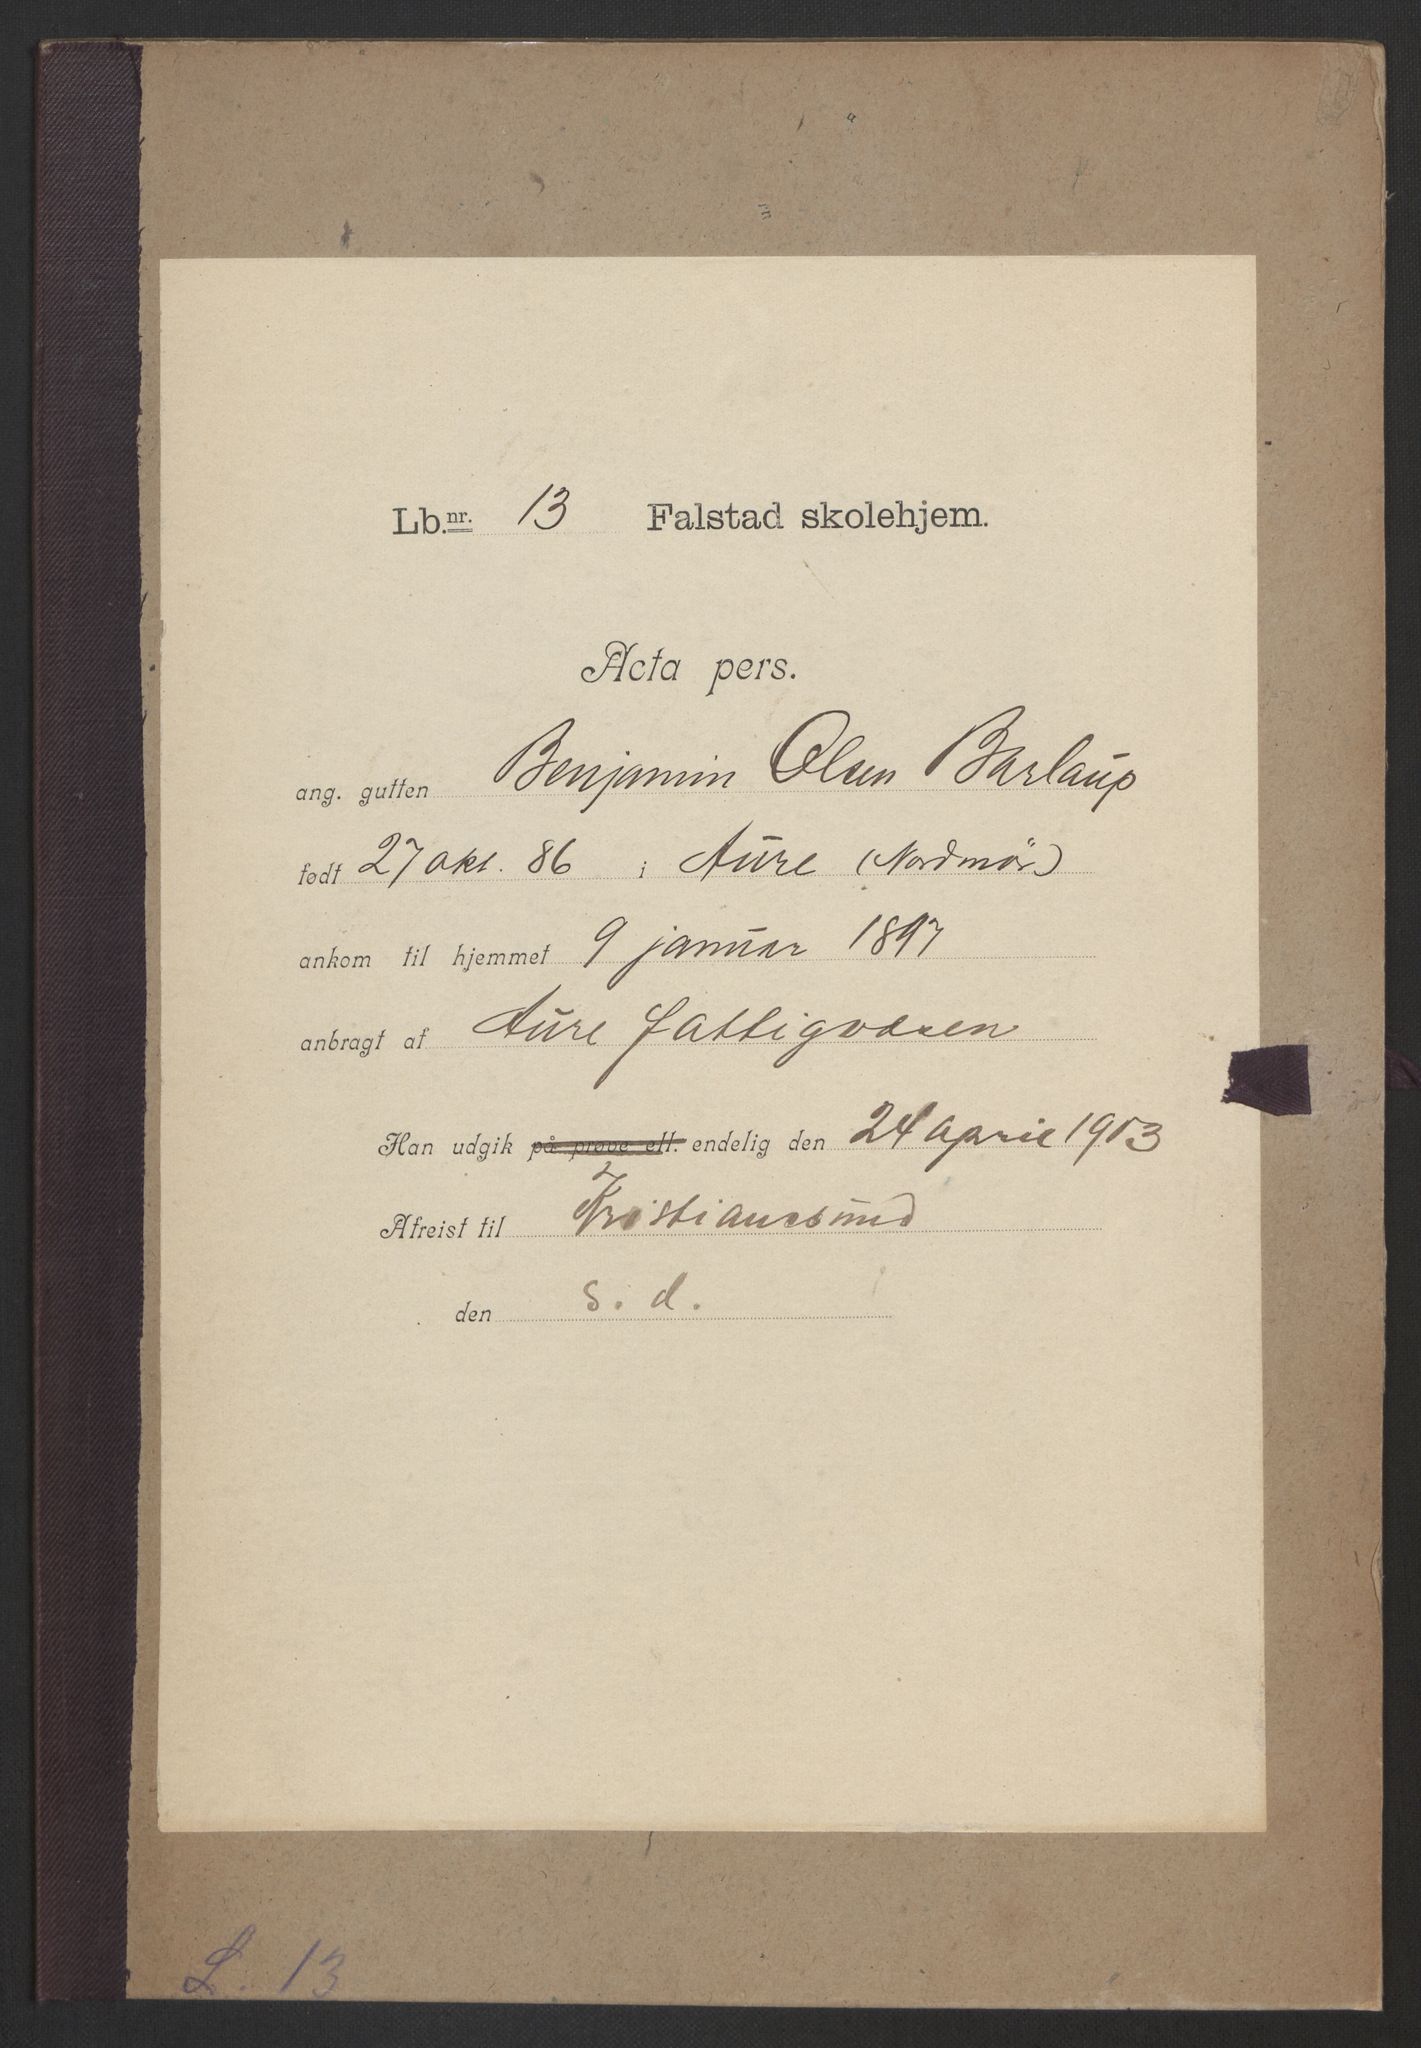 Lb.nr. 13 Falstad skolehjem.
Acta pers.
ang. gutten Benjamin Olsen Barlaup
født 27 okt. 86 i Aure (Nordmør)
ankom til hjemmet 9 januar 1897
anbragt af Aure fattigvæsen
Han udgik på prøve ell. endelig den 24 april 1903
Afreist til Kristianssund
den s. d.
L. 13